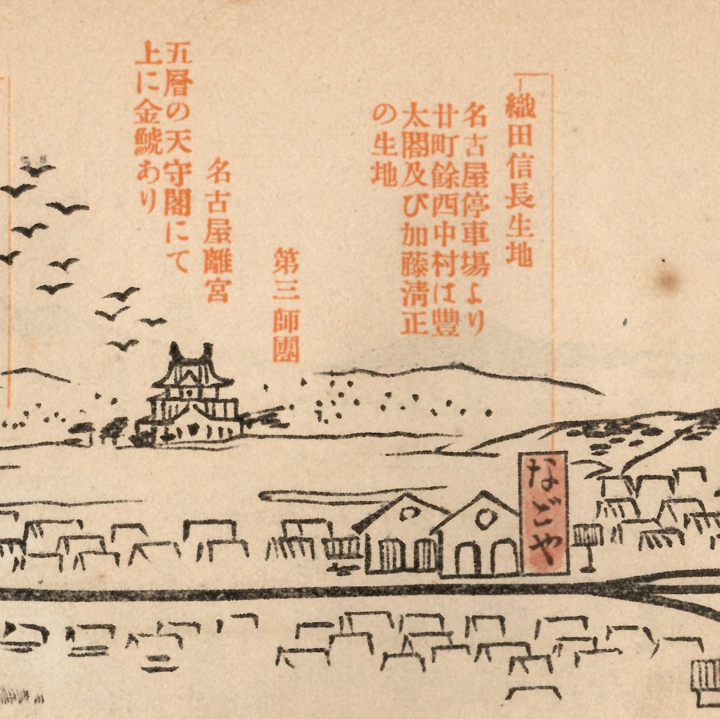 織田信長生地
名古屋停車場より
廿町餘西中村は豐
太閤及び加藤淸正
の生地
第三師團
名古屋離宮
五層の天守閣にて
上に金鯱あり
なごや